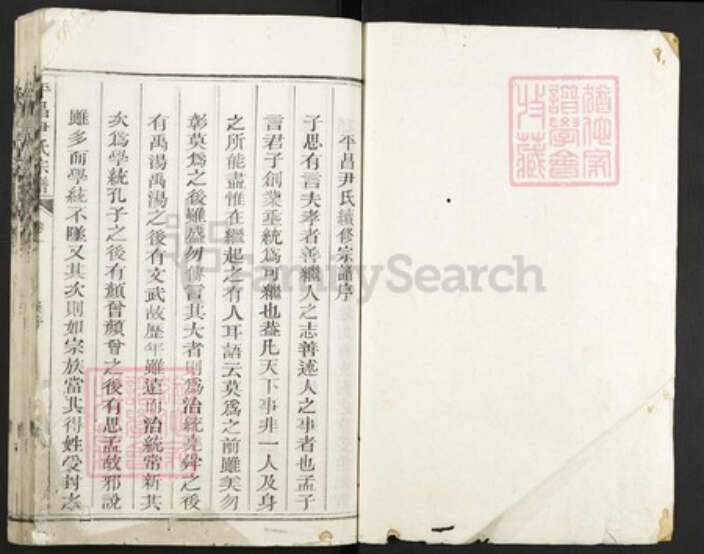 平昌尹氏續修宗譜序
子思有言夫孝者善繼人之志善述人之事者也孟子
言君子創業垂統爲可繼也蓋凡天下事非一人及身
之所能盡惟在繼起之有人耳語云莫爲之前雖美勿
彰莫爲之後雖盛勿傳言其大者則爲治統堯舜之後
有禹湯禹湯之後有文武故歷年雖遠而治統常新其
次爲學統孔子之後有顏曾顏曾之後有思孟故邪說
雖多而學統不墜又其次則如宗族當其得姓受封
平昌尹氏宗譜
FamilySearch